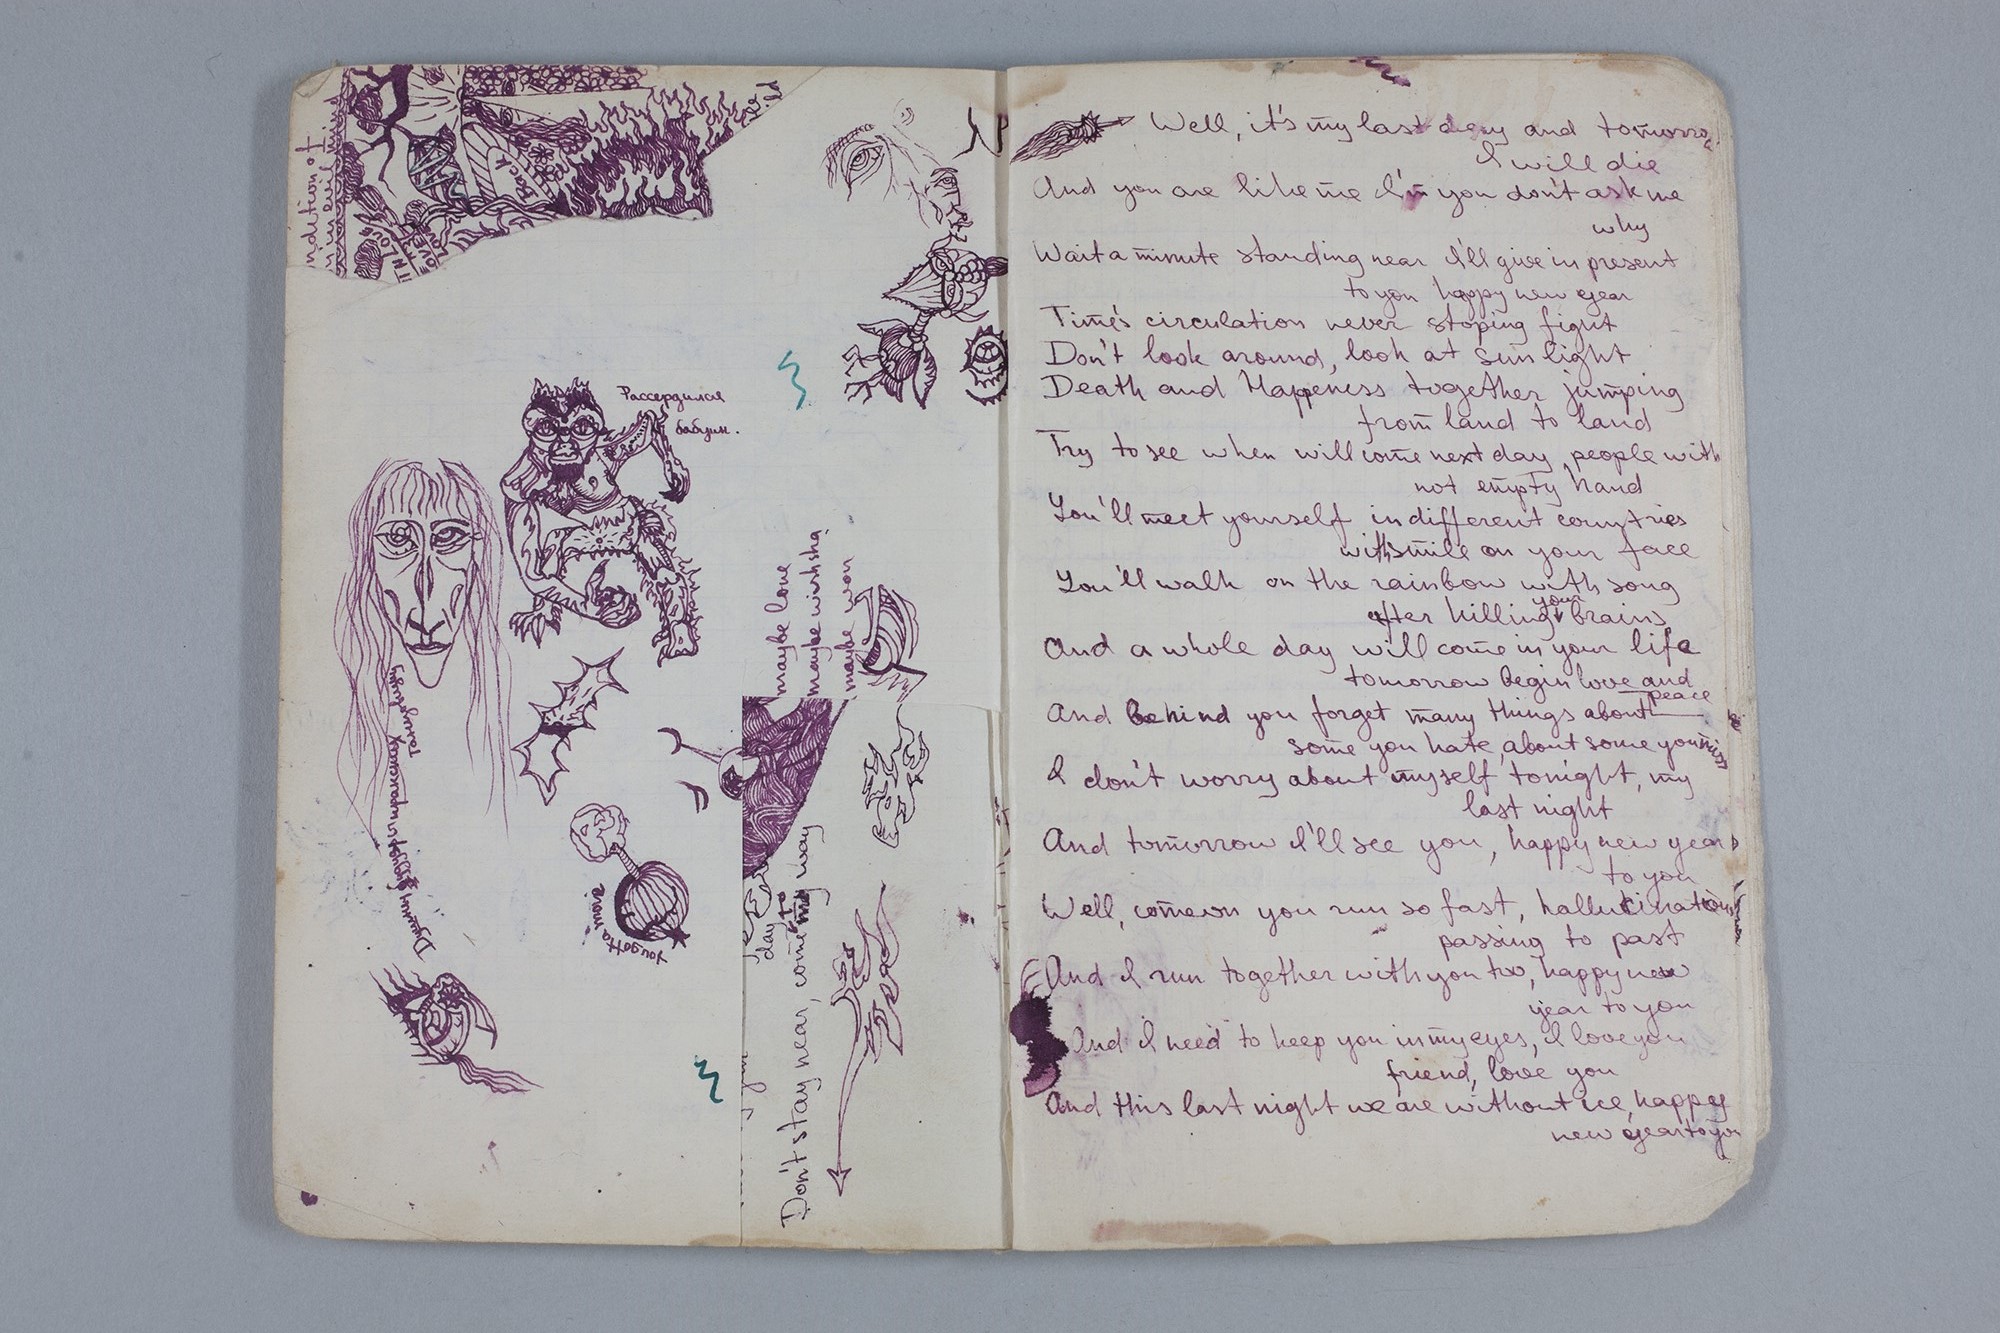 ndition of
Back
LOVE
Рассердился
бабуин.
maybe love
maybe
maybe won
You gotta move
day to
Don't stay near, come my way
Well, it's my last day and tomorro
I will die
And you are like me I'm you don't ask me
why
Wait a minute standing near I'll give in present
to you happy new year
Time's circulation never stoping fight
Don't look around, look at sun light
Death and Happeness together jumping
from land to land
Try to see when will come next day, people with
not empty hand
You'll meet yourself in different countries
with smile on your face
You'll walk on the rainbow with song
after killing your brains
And a whole day will come in your life
tomorrow begin love and
peace
And behind you forget many things about
some you hate, about some you miss
I don't worry about myself tonight, my
last night
And tomorrow I'll see you, happy new year
to you
Well, come on you run so fast, hallucinations
passing to past
And I run together with you too, happy new
year to you
And I need to keep you in my eyes, I love you
friend, love you
And this last night we are without ice, happy
new year to you